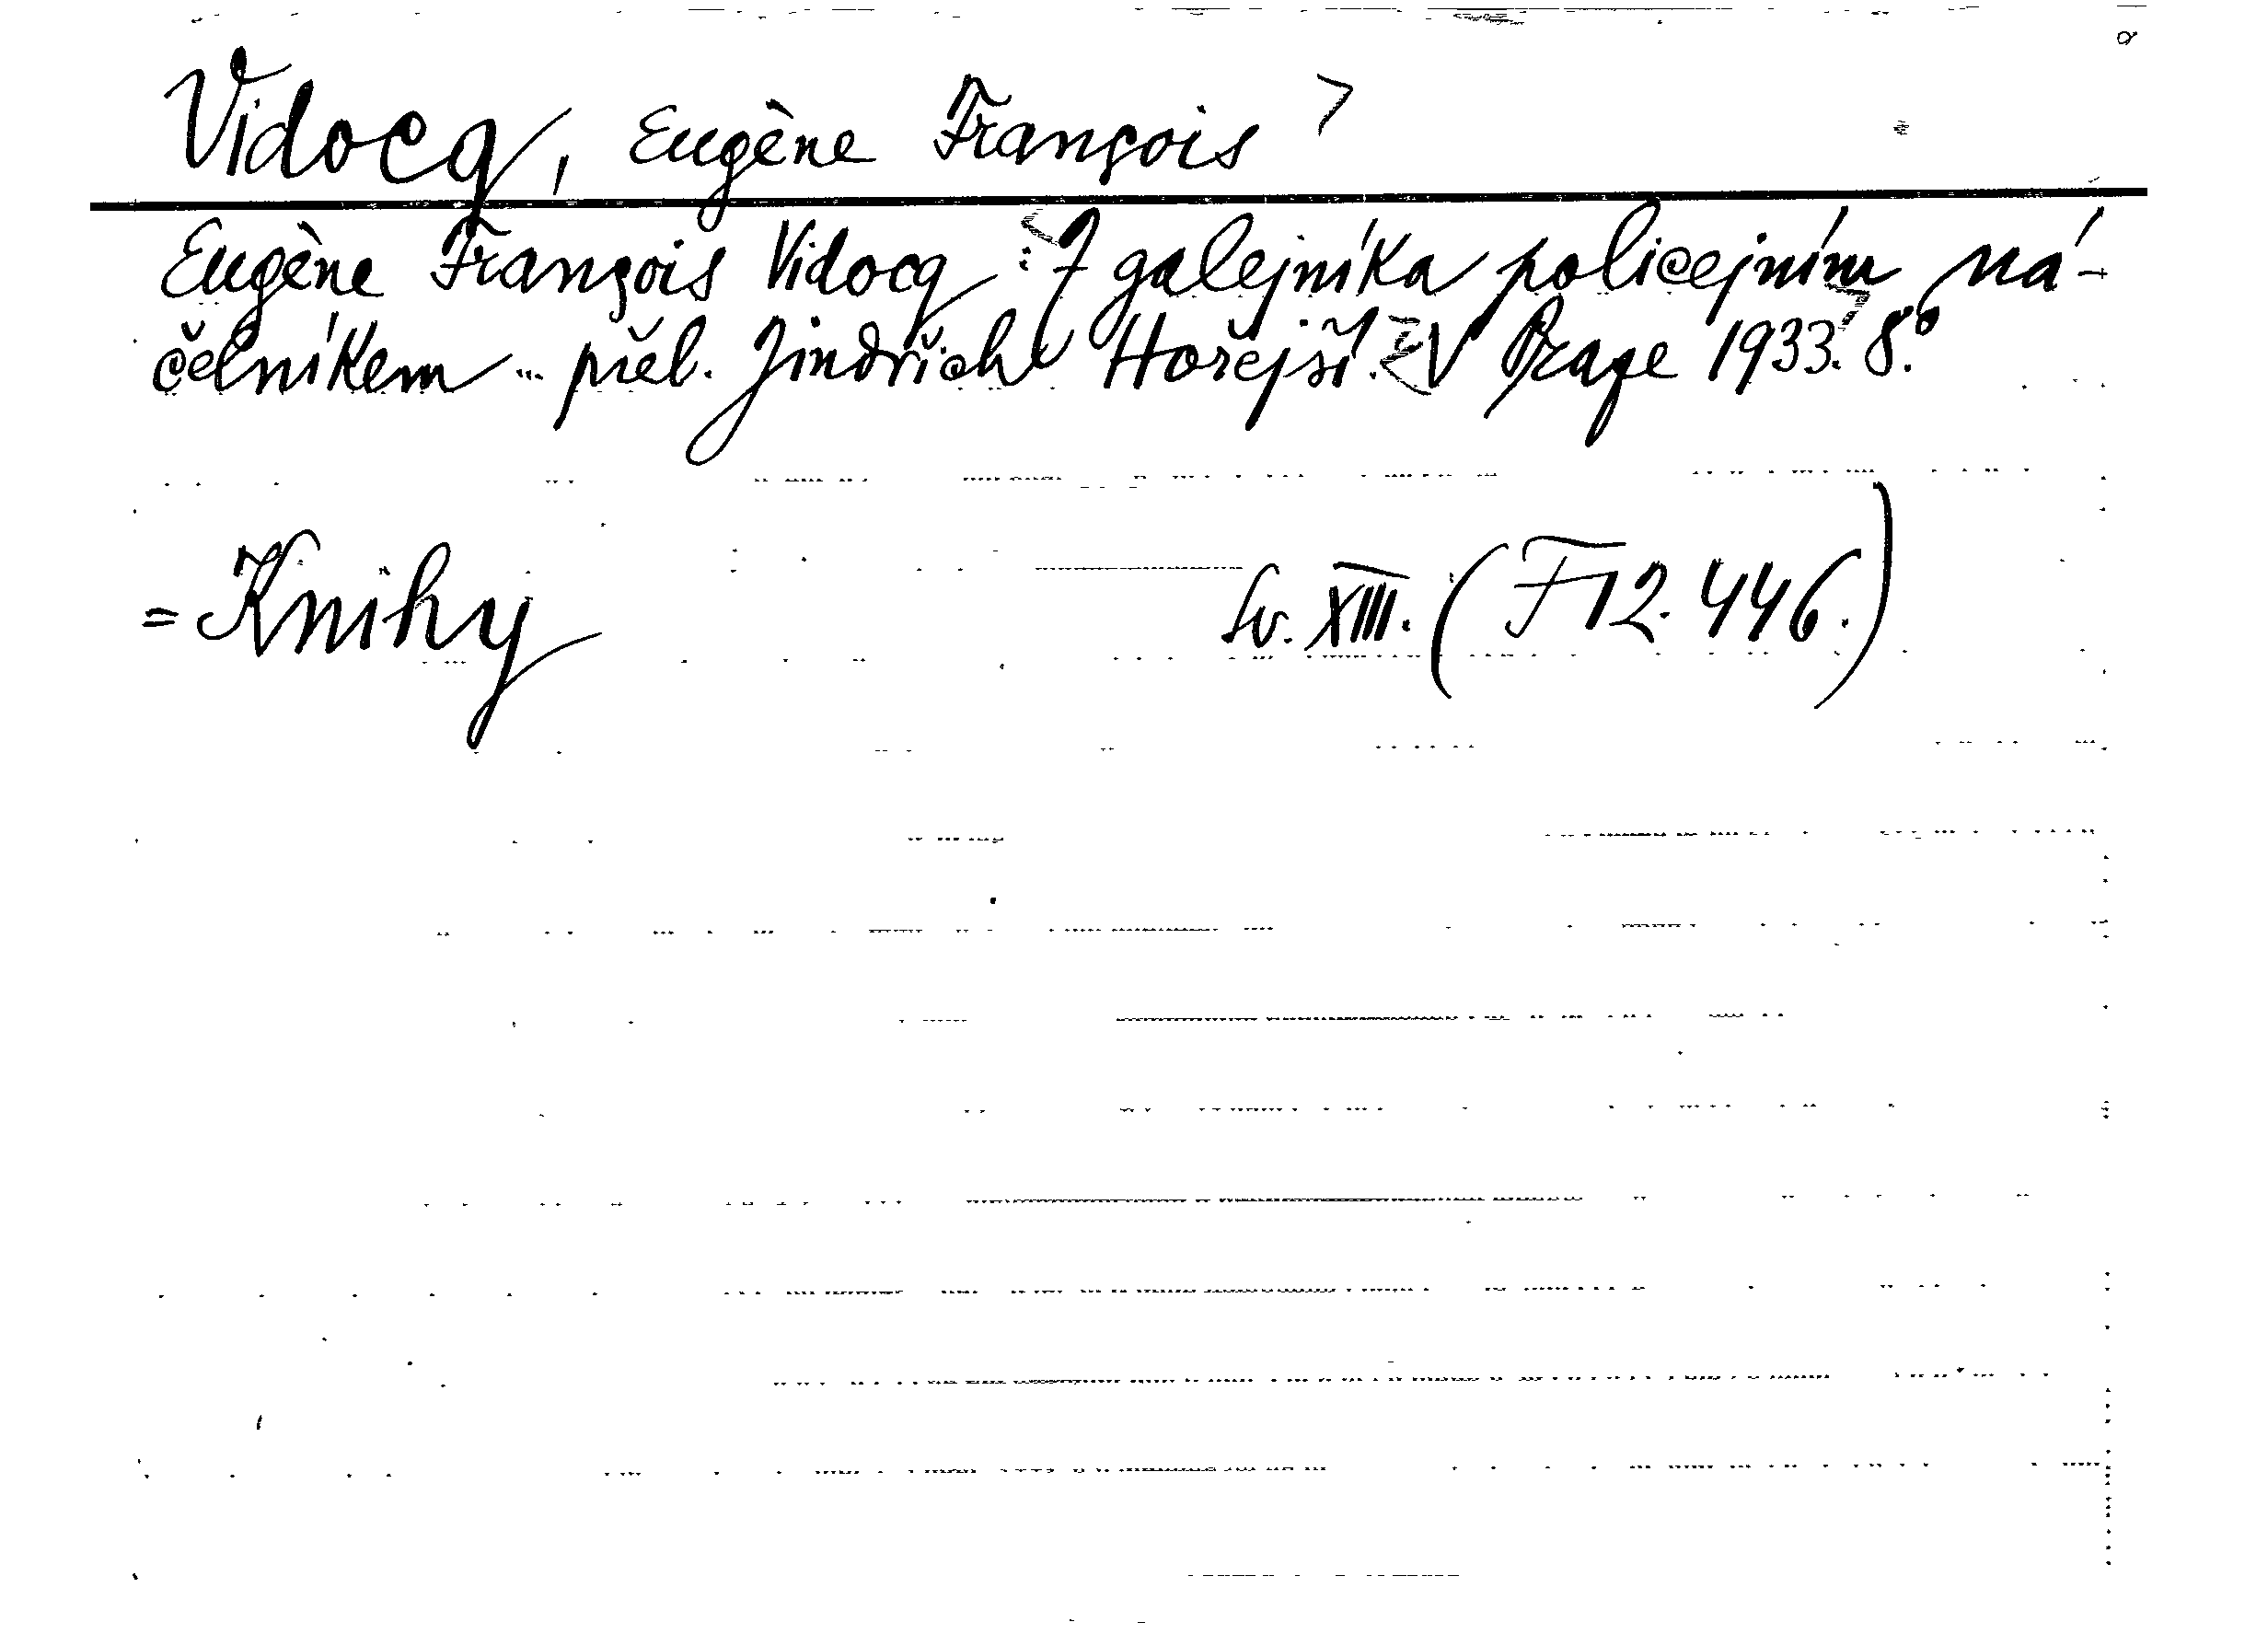 Vidocq, Eugène François
Eugène François Vidocq: Z galejníka policejním ná-
čelníkem... přel. Jindřich Hořejší. V Praze 1933. 8.°
= Knihy Sv. XIII. (F 12.446.)